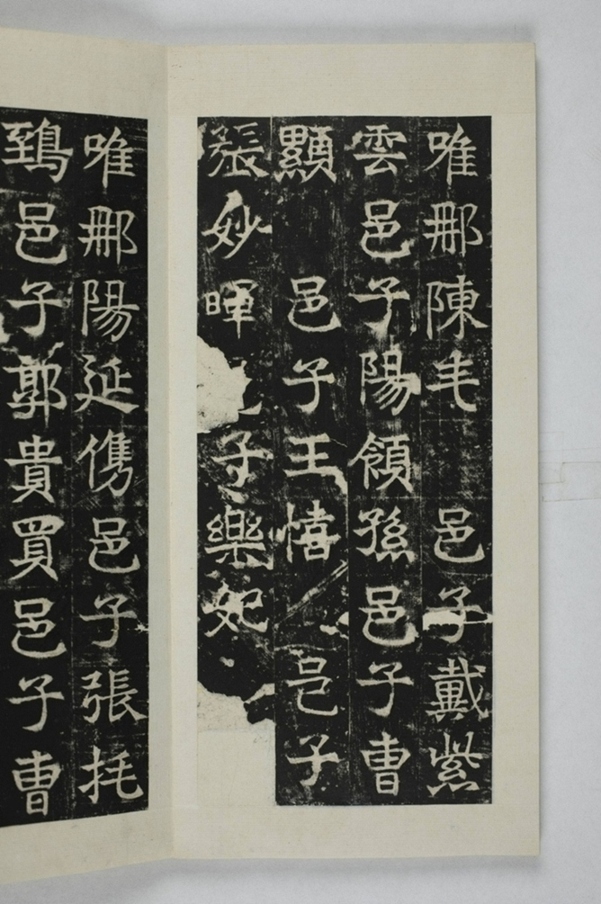 唯那陳毛 邑子戴紫
雲邑子陽領孫邑子曹
顯 邑子王憘 邑子
張妙暉 子樂妃
唯那陽延儁邑子張托
鵄邑子郭貴買邑子曹